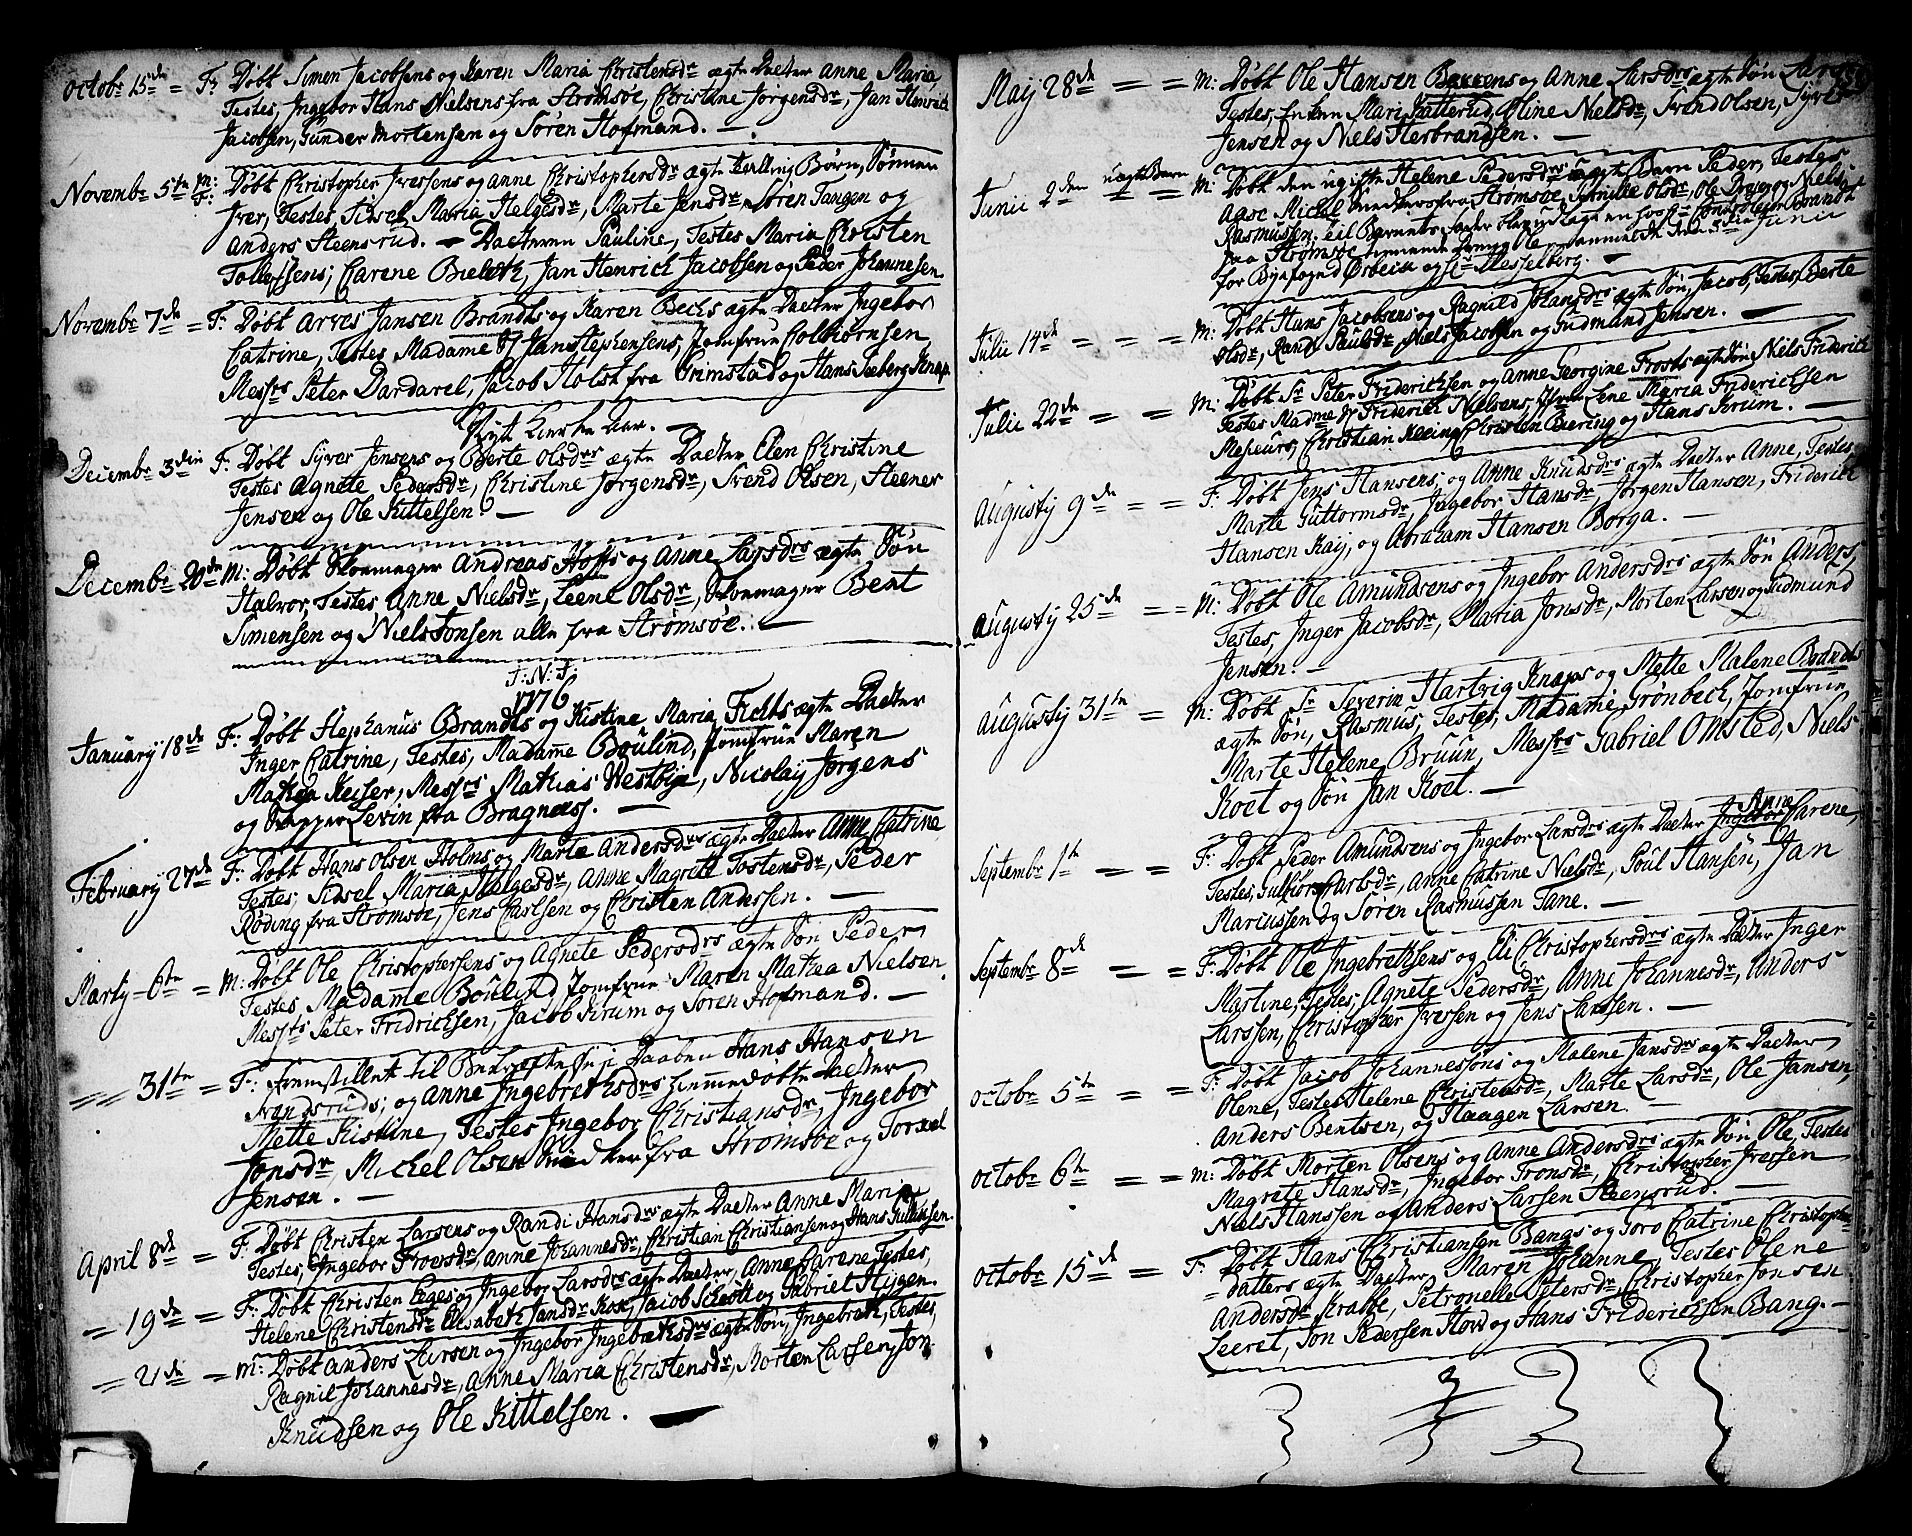 Octobr 15de = F: Døbt Simen Jacobsens og Karen Maria Christensdr ægte Datter Anne Maria,
Testes, Ingebor Hans Nielsens fra Strømsøe, Christine Jørgensdr, Jan Henrich
Jacobsen, Gunder Mortensen og Søren Hofmand. —
Novembr 5te M: F: Døbt Christopher Iversens og Anne Christophersdr ægte Tvilling Børn, Sønnen
Iver, Testes, Sidsel Maria Helgesdr, Marte Jensdr, Søren Tangen og
Anders Steensrud. — Datteren Pauline, Testes Maria Christen
Tollefsens; Carene Bieldtz, Jan Henrich Jacobsen og Peder Johannesen.
Novembr 7de = F: Døbt Arves Jansen Brandts og Karen Bechs ægte Datter Ingebor
Catrine, Testes Madame Jan Stephensens, Jomfrue Colbiørnsen,
Messrs Peter Dardarel, Jacob Holst fra Grimstad og Hans Seeberg Knap.
Nyt Kirke Aar. —
Decembr 3die F: Døbt Syver Jensens og Berte Olsdrs ægte Datter Elen Christine
Testes Agnete Pedersdr, Christine Jørgensdr, Svend Olsen, Steener
Jensen og Ole Kittelsen. —
Decembr 20de M: Døbt Skomager Andreas Hoffs og Anne Larsdrs ægte Søn
Halvor, Testes Anne Nielsdr, Leene Olsdr, Skomager Bent
Simensen og Niels Jonsen alle fra Strømsøe. —
I: N: J:
1776
January 18de F: Døbt Stephanus Brandts og Kistine Maria Fichts ægte Datter
Inger Catrine, Testes, Madame Boulind, Jomfrue Maren
Mathea Keiser, Messrs Mathias Westbye, Nicolay Jørgens
og Skipper Levin fra Bragnæss. —
February 27de F: Døbt Hans Olsen Holms og Marte Andersdrs ægte Datter Anne Catrine
Testes, Sidsel Maria Helgesdr, Anne Magrett Tostensdr, Peder
Røding fra Strømsøe, Jens Carlsen og Christen Andessen. —
Marty = 6te = M: Døbt Ole Christophersens og Agnete Pedersdrs ægte Søn Peder
Testes Madame Boulind, Jomfrue Maren Mathea Nielsen
Messrs Peter Fridrichsen, Jacob Krum og Søren Hofmand. —
== 31te = F: Fremstillet til Daaben Hans Hansen
Trandsruds; og Anne Ingebrethsdrs Hiemmedøbte Datter
Mette Kistine, Testes Ingebor Christiansdr, Ingebor
Jonsdr, Michel Olsen fra Strømsøe og Torael
Jensen. —
April 8de = F: Døbt Christen Larsens og Randi Hansdrs ægte Datter Anne Maria
Testes, Ingebor Provsdr, Anne Johannesdr, Christian Christiansen og Hans Gulliksen.
= 19de = F: Døbt Christen Eeges og Ingebor Larsdrs ægte Datter, Anne Carene, Testes,
Helene Christensdr, Elisabeth Jansdr Kox, Jacob Schiøtt og Gabriel Stygen.
= 21de = M: Døbt Anders Larsen og Ingebor Ingebrethsdrs ægte Søn, Ingebreth, Testes,
Ragnil Johannesdr, Anne Maria Christensdr, Morten Larsen, Jon
Knudsen og Ole Kittelsen. —
Maij 28de == M: Døbt Ole Hansen Bakkens og Anne Larsdrs ægte Søn Lars
Testes, Enken Mari Hatterud, Oline Nielsdr, Svend Olsen, Syver
Jensen og Niels Herbrandsen. —
Junii 2den uægte Barn M: Døbt den ugifte Helene Pedersdrs uægte Barn Peder, Testes
Aase Michel Snedkers fra Strømsøe, Pernille Olsdr, Ole Dreyer og Niels
Rasmussen, til Barnets Fader blev udlagt en
fra Strømsøe Ole anmeldt den 3die Junii
for Byefogd Ørbeck og Sr Hesselberg. —
Julii 14de = = = M: Døbt Hans Jacobsens og Ragnild Johansdrs ægte Søn, Jacob, Testes, Berte
Olsdr, Randi Paulsdr, Niels Jacobsen og Gudmand Jensen. —
Julii 22de = = M: Døbt Sr Peter Friderichsen og Anne Georgine Frosts ægte Søn Niels Friderich
Testes Madme Friderich Nielsens, Jfrue Lene Maria Friderichsen
Messieurs, Christian Christen Buering og Hans Krum. —
Augusty 9de = = F: Døbt Jens Hansens, og Anne Knudsdrs ægte Datter Anne, Testes,
Marte Guttormsdr, Ingebor Hansdr, Jørgen Hansen, Friderich
Hansen Kaij, og Abraham Hansen Borga. —
Augusty 25de == M: Døbt Ole Amundsens og Ingebor Andersdrs ægte Søn Anders,
Testes, Inger Jacobsdr, Maria Jonsdr, Morten Larsen og Gudmund
Jensen. —
Augusty 31te = M: Døbt Sr Severin Hartvig Knaps og Mette Malene Brandts
ægte Søn, Rasmus, Testes, Madame Grønbeck, Jomfrue
Marte Helene Bruun, Messrs Gabriel Omsted, Niels
Koet og Søn Jan Koet. —
Septembr 1te = = F: Døbt Peder Amundsens og Ingebor Larsdrs ægte Datter Ingebor Anne Carene,
Testes, Gulbiør Carlsdr, Anne Catrine Nielsdr, Poul Hansen, Jan
Marcussen og Søren Rasmussen Tane. —
Septembr 8de = = F: Døbt Ole Ingebrethsens og Eli Christophersdrs ægte Datter Inger
Martine, Testes, Agnete Pedersdr, Anne Johannesdr, Anders
Larssen, Christopher Iversen og Jens Larssen. —
Octobr 5te = = F: Døbt Jacob Johannessøns og Malene Jansdrs ægte Datter
Olene, Testes Helene Christensdr, Marte Larsdr, Ole Jansen,
Anders Bentsen, og Haagen Larsen. —
Octobr 6te = = M: Døbt Morten Olsens og Anne Andersdrs ægte Søn Ole, Testes
Magrete Hansdr, Ingebor Tronsdr, Christopher Iversen
Niels Hanssen og Anders Larsen Steensrud. —
Octobr 15de = F: Døbt Hans Christiansen Bangs og Goro Catrine Christophe-
=datters ægte Datter, Maren Johanne, Testes Olene
Andersdr Krabbe, Petronelle Petersdr, Christopher Jonsen
Leeret, Jon Pedersen Hov og Hans Friderichsen Bang. —